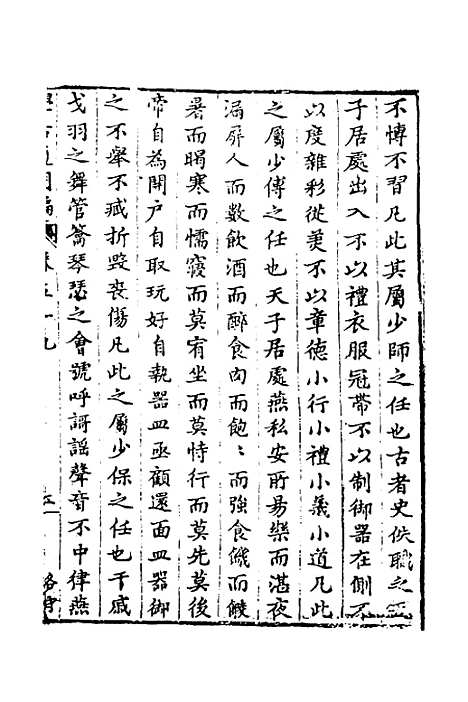 不博不習凡此其屬少師之任也古者史佚職之天
子居處出入不以禮衣服冠帶不以制御器在側不
以度雜彩從美不以章德小行小禮小義小道凡此
之屬少傅之任也天子居處燕私安所易樂而湛夜
漏屏人而數飲酒而醉食肉而飽飽而強食饑而餧
暑而暍寒而懦寢而莫宥坐而莫恃行而莫先莫後
帝自為開户自取玩好自執器皿亟顧還面皿器御
之不舉不臧折毀喪傷凡此之屬少保之任也干戚
戈羽之舞管籥琴瑟之會號呼謌謡聲音不中律燕
卷五十九